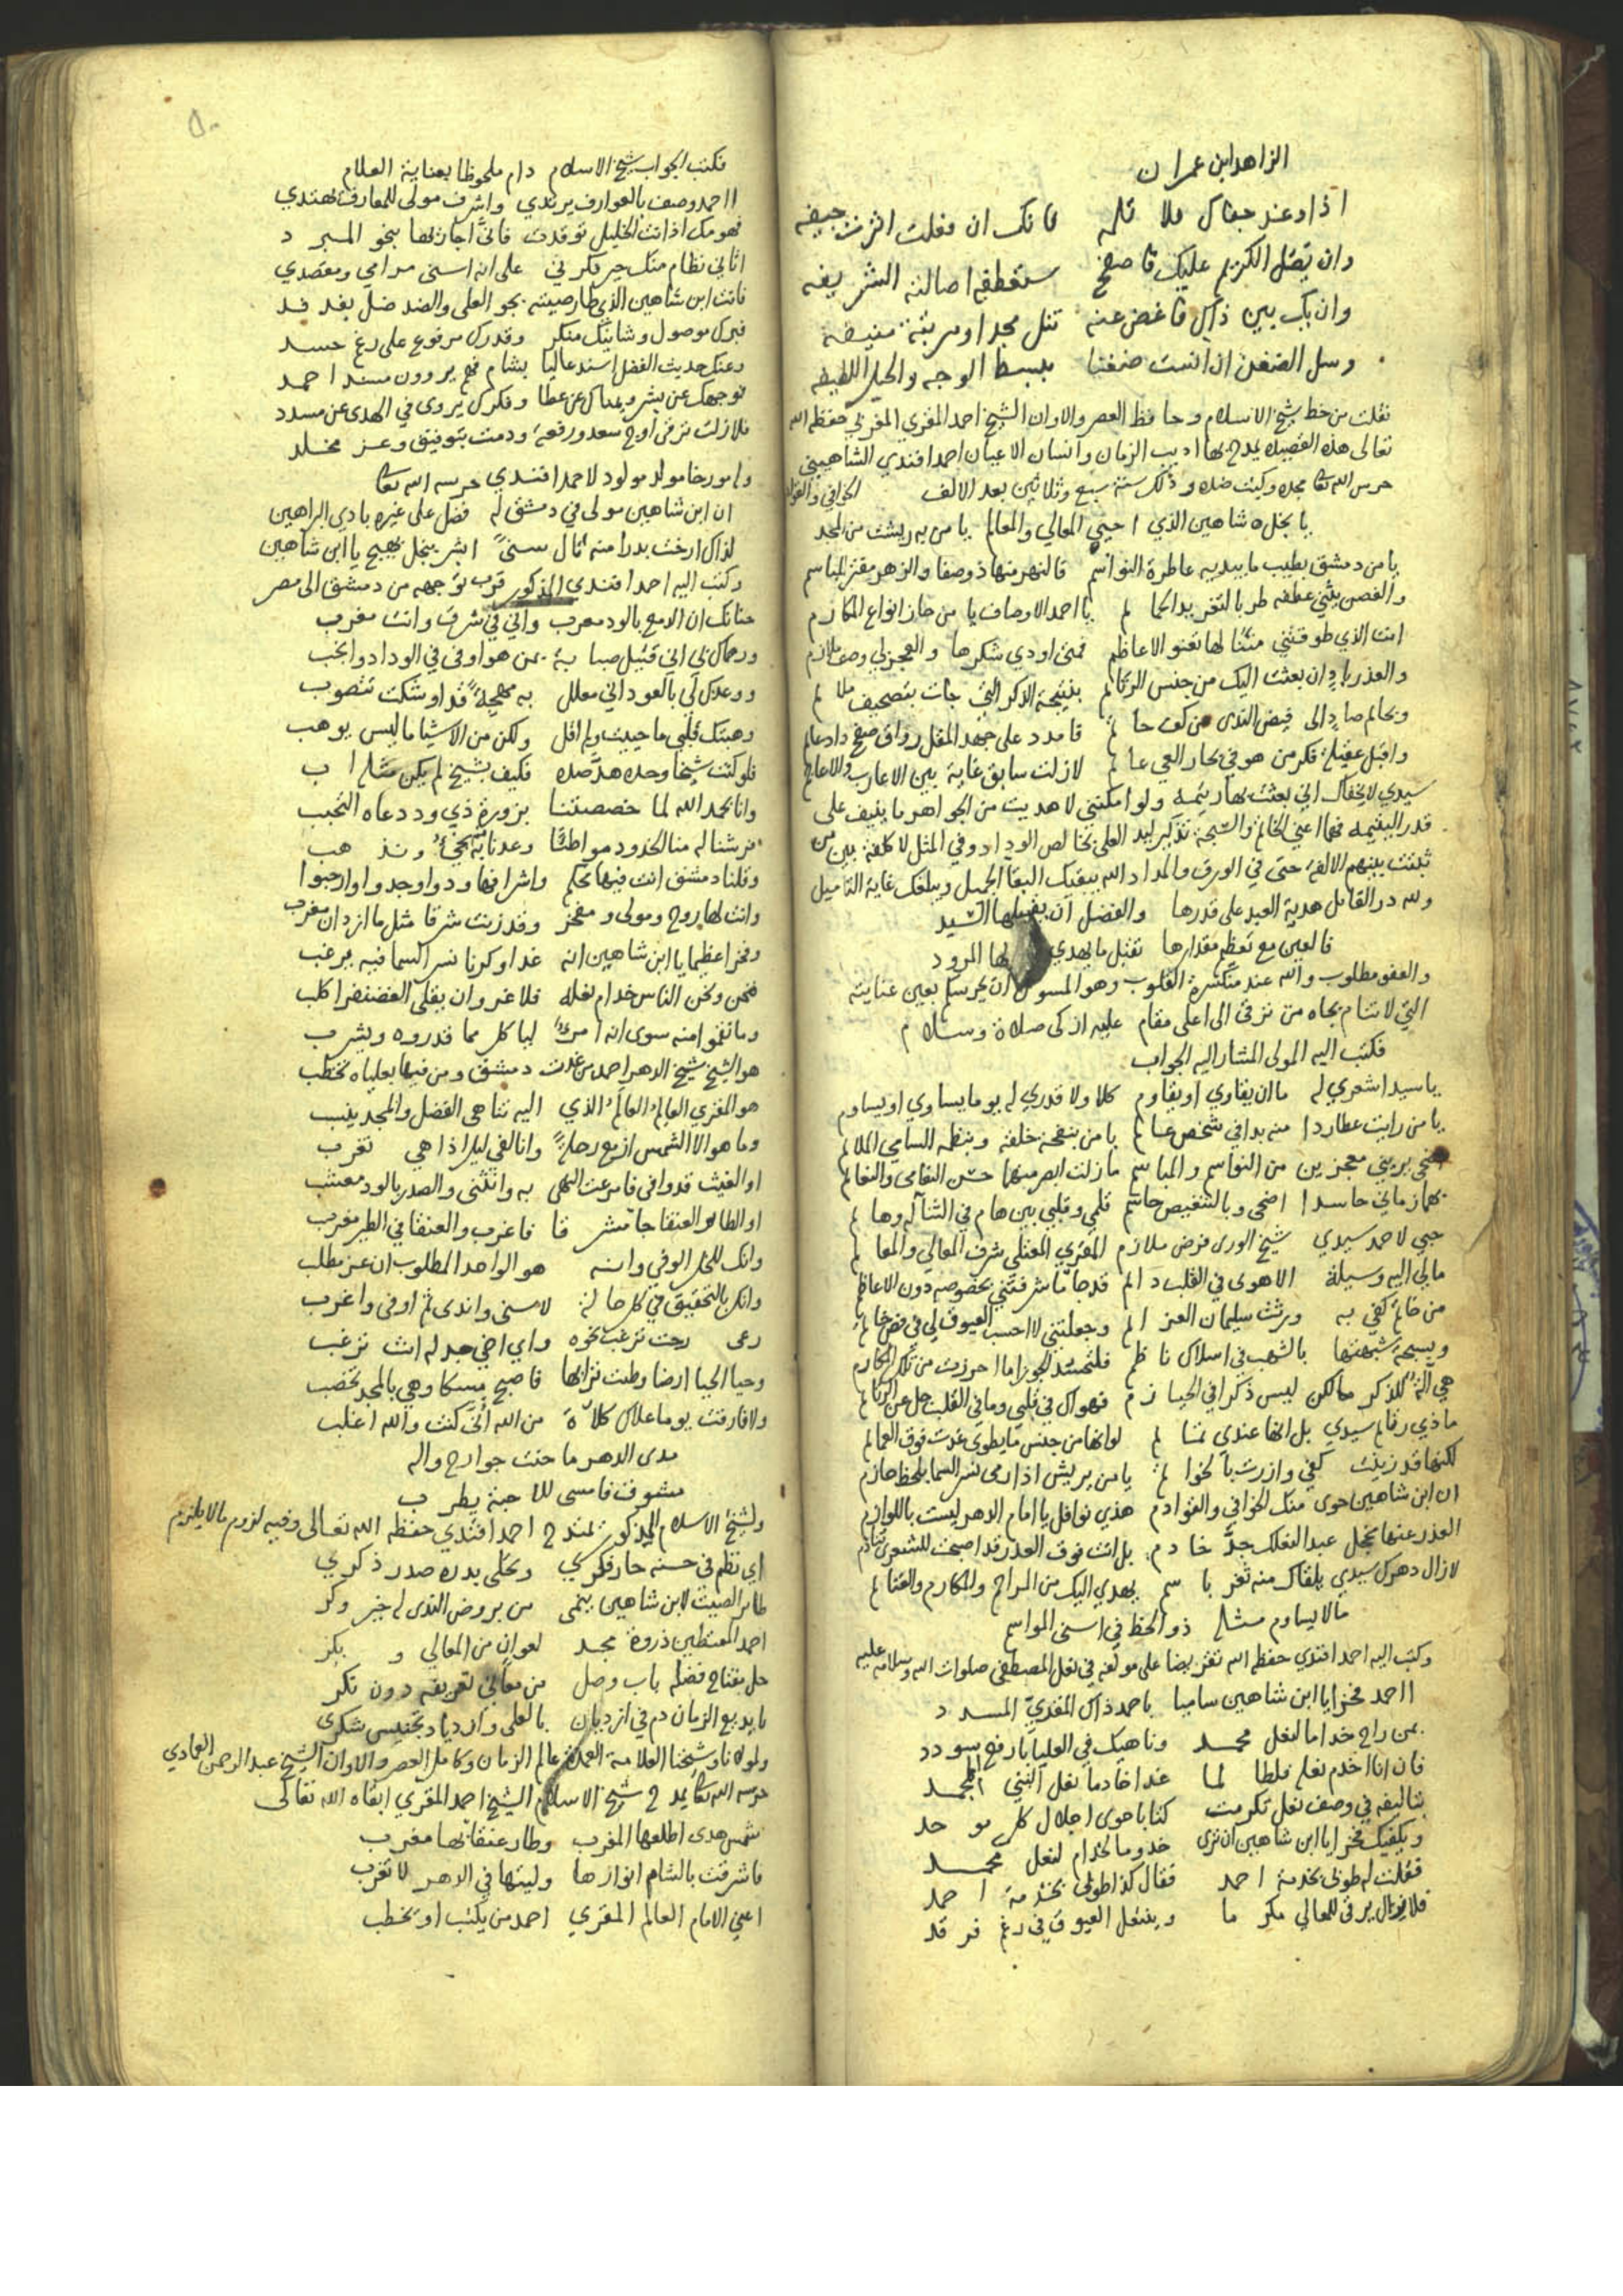 الزاهد ابن عمران
اذا دعند جفاك فلا تلمه فانك ان فعلت اثرت جيفه
وان يصل الكريم عليك فاصفح ستعطفه اصالته الشريفه
وان يك بين ذاك فاغض عنه تنل مجدا ومرتبة منيفه
وسل الضغن ان انست ضغنا ببسط الوجه والحيل اللطيفه
نقلت من خط شيخ الاسلام وحافظ العصر والاوان الشيخ احمد المقري المغربي حفظه الله
تعالى هذه القصيده يمدح بها اديب الزمان وانسان الاعيان احمد افندي الشاهيني
حرس الله تعا مجده وكبت ضده وذلك سنة سبع وثلاثين بعد الالف
يا نجل شاهين الذي احيى المعالي والمعالم يا من به ريشت من المجد الخوافي والقوادم
يا من دمشق بطيب ما يبديه عاطرة النواسم فالنهر منها ذو صفا والزهر مفتر المباسم
والغصن يثني عطفه طربا لتغريد الحمائم يا احمد الاوصاف يا من حاز انواع المكارم
انت الذي طوقتني مننا لها تعنو الاعاظم فمتى اودي شكرها والعجز لي وصف ملازم
والعذر باد ان بعثت اليك من جنس الرتائم بنتيجة الذكر التي جات بتصحيف ملائم
وبخاتم صاد الى فيض الندى من كف حاتم فامدد على جهد المقل رواق صفح دا دعائم
واقبل عقيلة فكر من هو في بحار العي عائم لازلت سابق غاية بين الاعارب والاعاجم
سيدي لا يخفاك اني بعثت بها رتيمه ولو امكنني لاهديت من الجواهر ما ينيف على
قدر اليتيمه فهما اعني الخاتم والسبحة تذكير ليد العلى بخالص الوداد وفي المثل لا كلفة بين من
ثبتت بينهم الالفة حتى في الورق والمداد والله يبقيك البقا الجميل ويبلغك غاية التاميل
ولله در القائل هدية العبد على قدرها والفضل ان يقبلها السيد
فالعين مع تعظيم مقدارها تقبل ما يهدي لها المرود
والعفو مطلوب والله عند منكسرة القلوب وهو المسول ان يحرسكم بعين عنايته
التي لا تنام بجاه من ترقى الى اعلى مقام عليه ازكى صلاة وسلام
فكتب اليه المولى المشار اليه الجواب
يا سيدا شعري له ما ان يقاوي او يقاوم كلا ولا قدري له يوما يساوي او يساوم
يا من رايت عطاردا منه بدا في شخص عالم يا من بنفحة خلقه وبنظمه السامي الملائم
اضحى يريني معجزين من النواسم والمباسم ما زلت ابصر منهما حسن التمامى والتمائم
بهما زماني حاسدا اضحى وبالتنغيص حاسم قلمي وقلبي بين هام في الثنا له وهائم
حبي لاحمد سيدي شيخ الورى فرض ملازم المقري المعتلي شرف المعالي والمعالم
ما لي اليه وسيلة الا هوى في القلب دائم قد جا ما شرفتني بخصوصه دون الاعاظم
من خاتم كفي به ورثت سليمان العزائم وجعلتني لا احسب العيوق لي في فص خاتم
وبسبحة شبهتها بالشهب في اسلاك ناظم فلتحسد الجوزا ما احرزت من تلك المكارم
هي آلة للذكر ما لكن ليس ذكرا في الحيازم فهواك في قلبي وما في القلب جل عن الرتائم
ماذي رتائم سيدي بل انها عندي تمائم لو انها من جنس ما يطوى غدت فوق العمائم
لكنها قد زينت كفي وازرت بالخواتم يا من يريش اذا رمى نسر السما بلحظ حازم
ان ابن شاهين حوى منك الخوافي والقوادم هذي نوافل يا امام الدهر ليست باللوازم
العذر عنها نخجل عبد الفلك جد خادم بل انت فوق العذر قد اصبحت للشعرى تنادم
لازال دهرك سيدي يلقاك منه ثغر باسم يهدي اليك من المراحم والمكارم والغنائم
ما لا يساوم مثله ذو الحظ في اسنى المواسم
وكتب اليه احمد افندي حفظه الله تقريضا على مولفه في نعل المصطفى صلوات الله وسلامه عليه
ااحمد فخرا يا ابن شاهين ساميا باحمد ذاك المقري المسدد
بمن راح خداما لنعل محمد وناهيك في العليا بارفع سودد
فان انا اخدم نعله فلطالما غدا خادما نعل النبي الممجد
بتاليفه في وصف نعل تكرمت كتابا حوى اجلال كل موحد
ويكفيك فخرا يا ابن شاهين ان ترى خدوما لخدام لنعل محمد
فقلت له طوبى بخدمة احمد فقال كذا طوبى بخدمة احمد
فلا زال يرقى للمعالي مكرما وينتعل العيوق في رغم فرقد
٥٠
فكتب الجواب شيخ الاسلام دام ملحوظا بعناية العلام
ااحمد وصف بالعوارف يرتدي واشرف مولى للمعارف يهتدي
فهومك اذ انت الخليل توقدت فاني اجاريها بنحو المبرد
اتاني نظام منك حير فكرتي على انه اسنى مرامي ومقصدي
فانت ابن شاهين الذي طار صيته نحو العلى والضد ضل بفدفد
فبرك موصول وشانيك منكر وقدرك مرفوع على رغم حسد
وعنك حديث الفضل اسند عاليا بشام فهم يروون مسند احمد
فوجهك عن بشر ويمناك عن عطا وفكرك يروي في الهدى عن مسدد
فلازلت ترقى اوج سعد ورفعة ودمت بتوفيق وعز مخلد
وله مورخا مولد مولود لاحمد افندي حرسه الله تعا
ان ابن شاهين مولى في دمشق له فضل على غيره بادي البراهين
لذاك ارخت بدرا منه نال سنى ابشر بنجل بهيج يا ابن شاهين
وكتب اليه احمد افندي المذكور قرب توجهه من دمشق الى مصر
حنانك ان الدمع بالود معرب واني في شرق وانت مغرب
ورحماك بي اني قتيل صبابة بمن هو اوفى في الوداد وانجب
ووعدك لي بالعود اني معلل به مهجة قد اوشكت تتصوب
وهبتك قلبي ما حييت ولم اقل ولكن من الاشيا ما ليس يوهب
فلو كنت شيخا وحده هد صده فكيف بشيخ لم يكن مثله اب
وانا بحمد الله لما خصصتنا بزورة ذي ود دعاه التحبب
فرشنا له منا الخدود مواطئا وعدنا به نحيي ونذهب
وقلنا دمشق انت فيها محكم واشرافها ودوا وجدوا وارحبوا
وانت لها روح ومولى ومفخر وقد زنت شرقا مثل ما ازدان مغرب
وفخرا عظيما يا ابن شاهين انه غدا وكرنا نسر السما فيه يرغب
فنحن ونحن الناس خدام نعله فلا غرو ان يقلى الغضنفر اكلب
وما نقموا منه سوى انه امرؤ لياكل مما قدروه ويشرب
هو الشيخ شيخ الدهر احمد من غدت دمشق ومن فيها بعلياه تخطب
هو المقري العالم العالم الذي اليه تناهى الفضل والمجد ينسب
وما هو الا الشمس ازمع رحلة وانا لفي ليل اذا هي تغرب
او الغيث قد وافى فامرعت النهى به وانثنى والصدر بالود معشب
او الطائر العنقا جا مشرقا فاغرب والعنقا في الطير مغرب
وانك للخل الوفي وانه هو الواحد المطلوب ان عز مطلب
وانك بالتحقيق في كل حالة لاسنى واندى ثم اوفى واغرب
رعى رحت ترغب نحوه واي اخي جد له انت ترغب
وحيا الحيا ارضا وطئت ترابها فاصبح مسكا وهي بالمجد تخصب
ولا فارقت يوما علاك كلاءة من الله انى كنت والله اغلب
مدى الدهر ما حنت جوارح واله
مشوق فامسى للاحبة يطرب
ولشيخ الاسلام المذكور يمتدح احمد افندي حفظه الله تعالى وفيه لزوم ما لا يلزم
اي نظم في حسنه حار فكري وتحلى بدره صدر ذكري
طائر الصيت لابن شاهين ينمى من بروض الندى له خير وكر
احمد الممتطين ذروة مجد لعوان من المعالي وبكر
حل مفتاح فضله باب وصل من معاني تعريفه دون نكر
يا بديع الزمان دم في ازديان بالعلى وازدياد تجنيس شكري
ولمولانا وشيخنا العلامة العمدة عالم الزمان وكامل العصر والاوان الشيخ عبد الرحمن العمادي
حرسه الله تعا يمدح شيخ الاسلام الشيخ احمد المقري ابقاه الله تعالى
شمس هدى اطلعها المغرب وطار عنقا بها مغرب
فاشرقت بالشام انوارها وليتها في الدهر لا تغرب
اعني الامام العالم المقري احمد من يكتب او يخطب